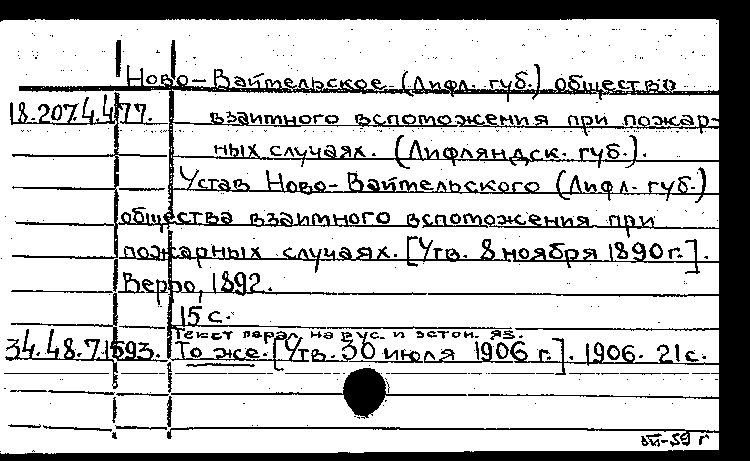 Ново-Вайтельское (Лифл. губ.) общество
18.207.4.477. взаимного вспоможения при пожар-
ных случаях. (Лифляндск. губ.).
Устав Ново-Вайтельского (Лифл. губ.)
общества взаимного вспоможения при
пожарных случаях. [Утв. 8 ноября 1890 г.].
Верро, 1892.
15 с.
Текст парал. на рус. и эстон. яз.
34.48.7.1593. То же. [Утв. 30 июля 1906 г.]. 1906. 21 с.